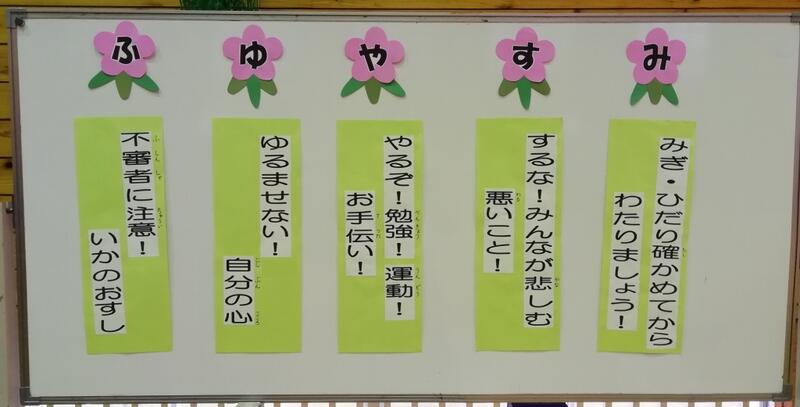 ふ
不審者に注意！
いかのおすし
ゆ
ゆるませない！
自分の心
や
やるぞ！勉強！運動！
お手伝い！
す
するな！みんなが悲しむ
悪いこと！
み
みぎ・ひだり確かめてから
わたりましょう！